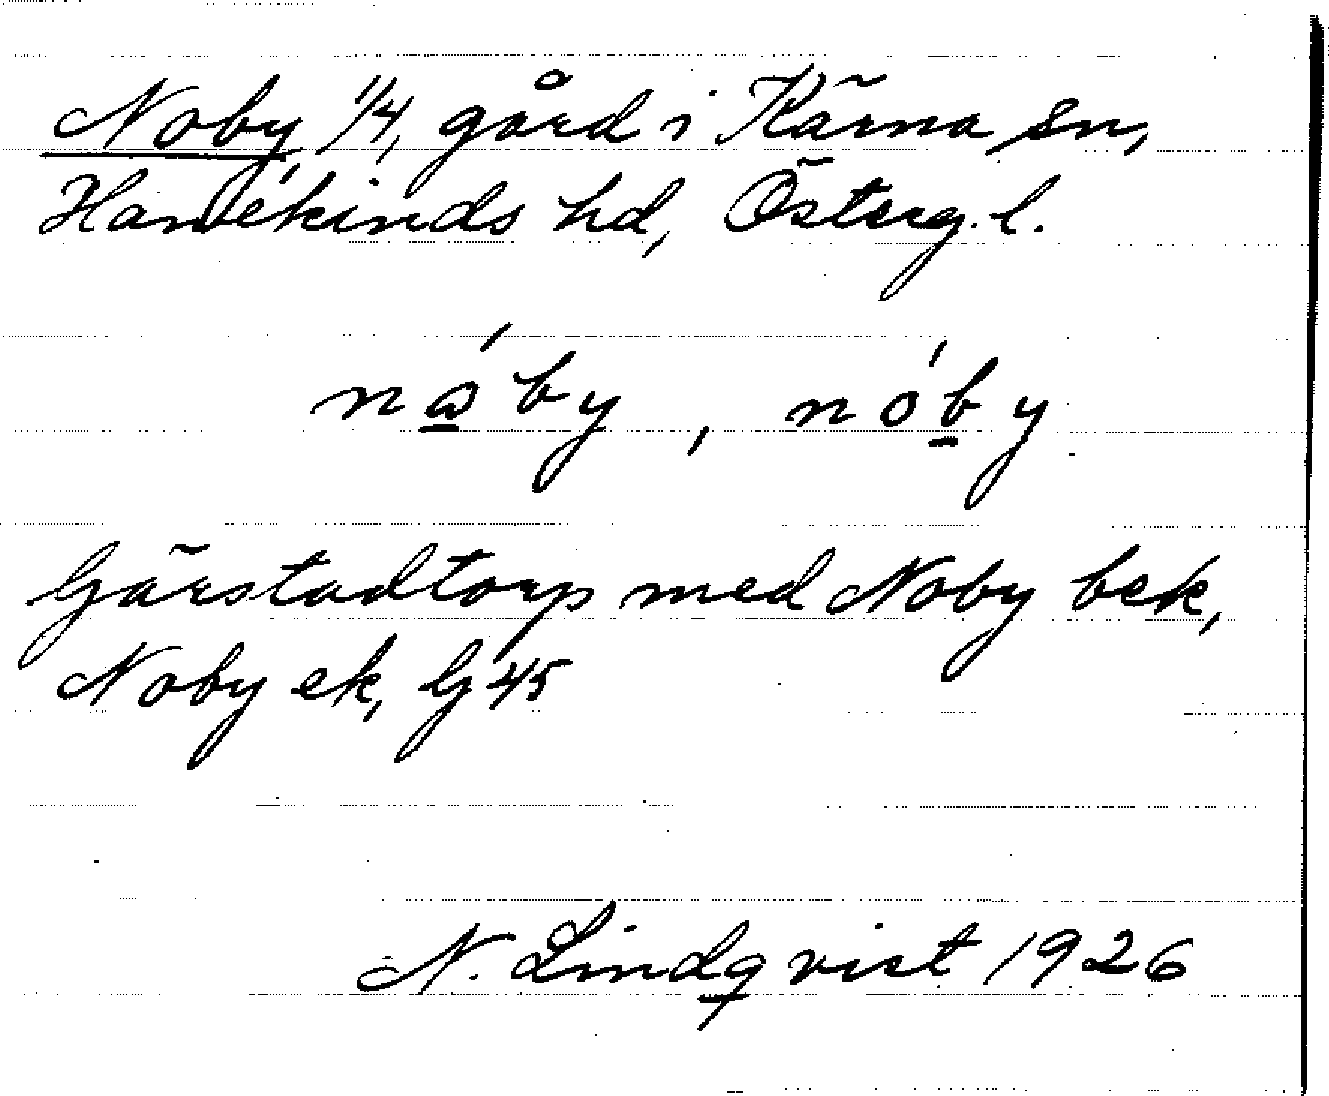 Noby 1/4, gård i Kärna sn,
Hanekinds hd, Österg. l.
nåby, nóby
Gärstadtorp med Noby bek,
Noby ek, G 45
N. Lindqvist 1926